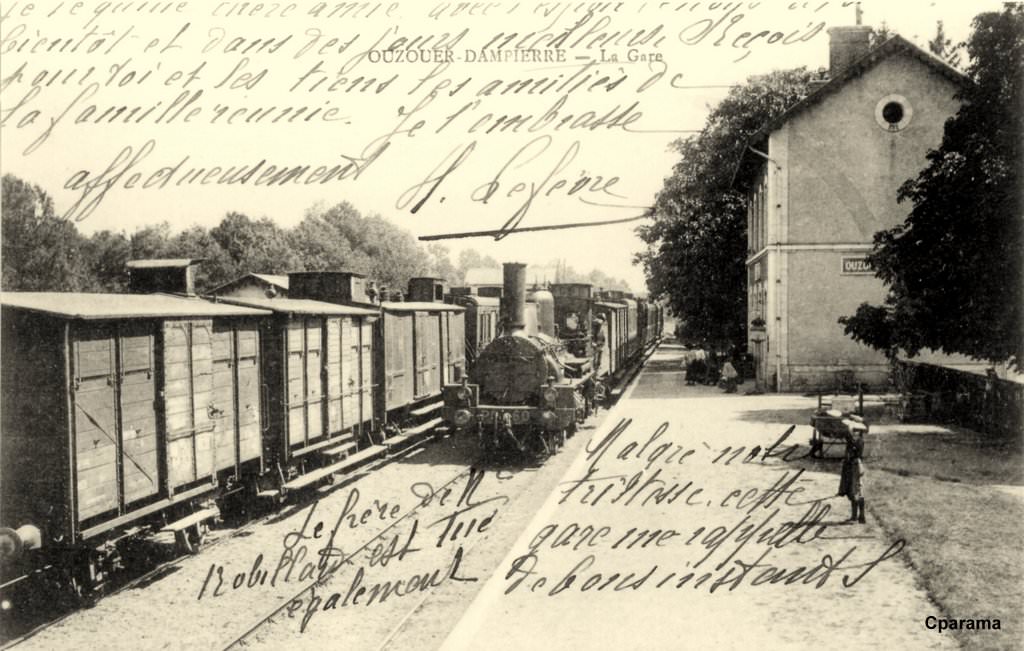 je quitte chère amie avec l'espoir
bientôt et dans des jours meilleurs. Reçois
OUZOUER-DAMPIERRE — La Gare
pour toi et les tiens les amitiés de
la famille réunie. Je t'embrasse
affectueusement H. Lefèvre
OUZO
Malgrè notre
tristesse, cette
gare me rappelle
de bons instants
Le frère de
Robillard est tué
également
Cparama